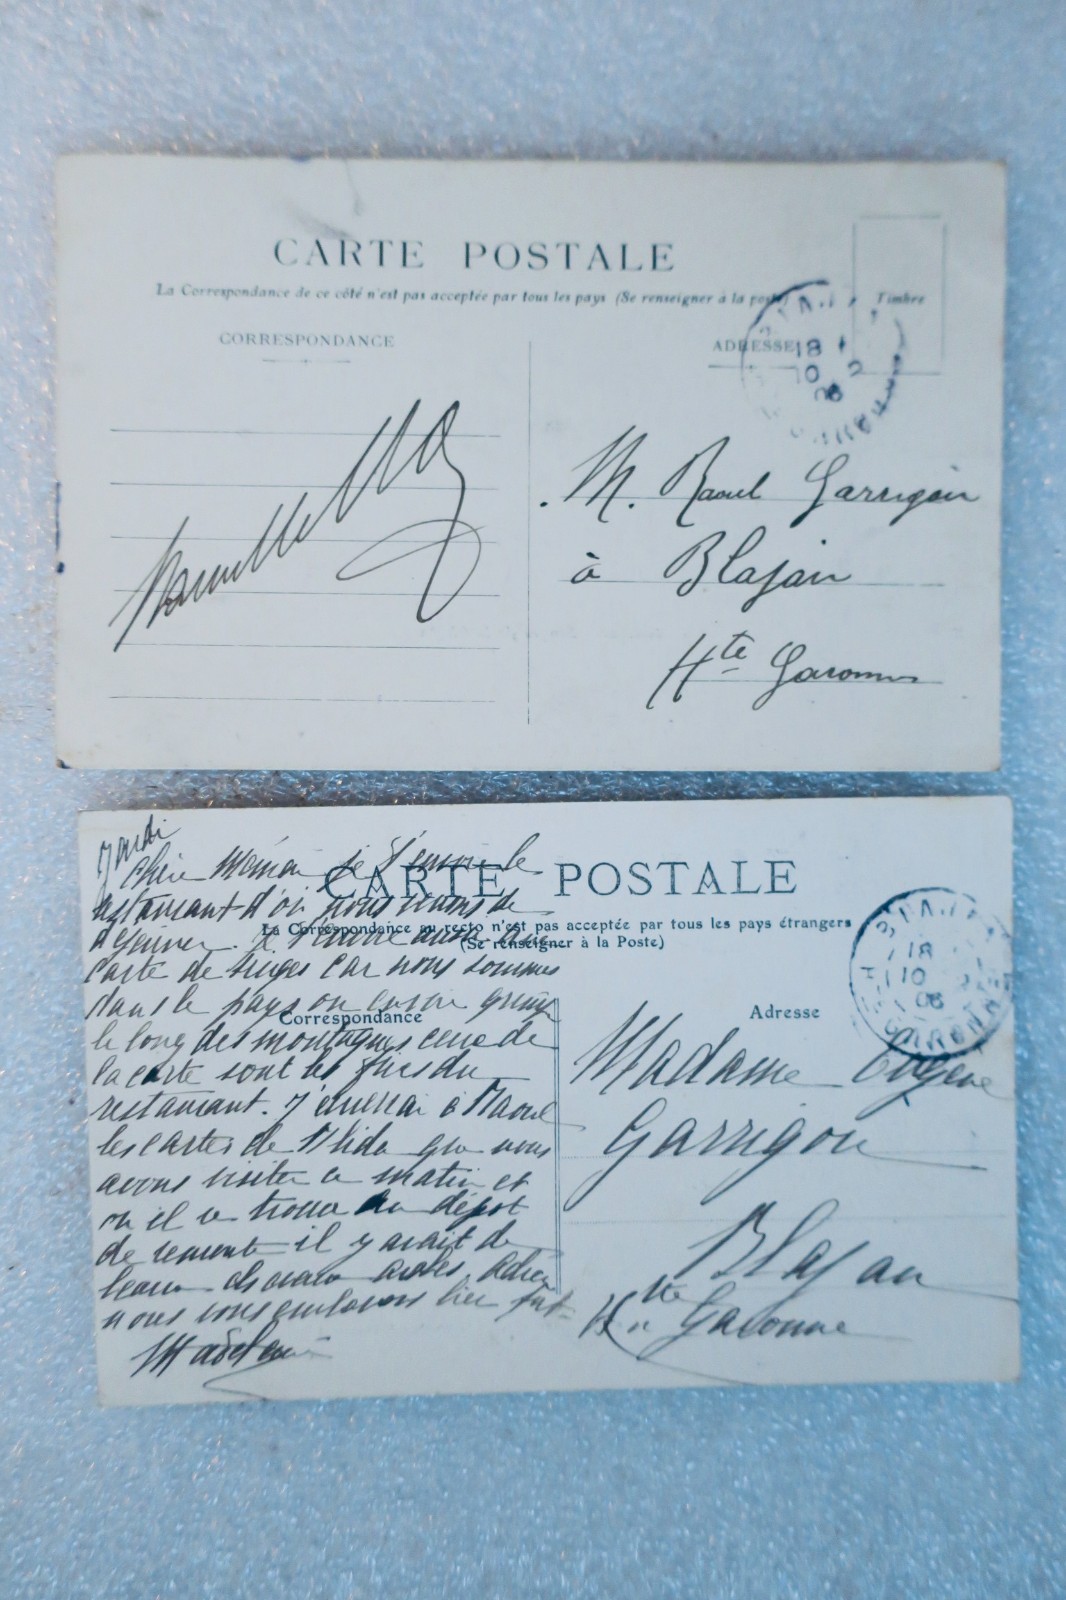 CARTE POSTALE
La Correspondance de ce côté n'est pas acceptée par tous les pays (Se renseigner à la poste)
Timbre
CORRESPONDANCE
ADRESSE
18
10
06
M. Raoul Garrigou
à Blajan
Hte Garonne
Jeudi
Chère Maman je t'envoie le
restaurant d'où nous venons de
déjeuner. Je t'envoie aussi une
carte de singes car nous sommes
dans le pays on en voit
le long des montagnes ceux de
la carte sont les du
restaurant. J'enverrai à Raoul
les cartes de Blida que nous
avons visiter ce matin et
où il se trouve un dépôt
de remonte il y avait de
beaux chevaux arabes. Adieu
nous vous embrassons bien fort
Madeleine
CARTE POSTALE
La Correspondance au recto n'est pas acceptée par tous les pays étrangers
(Se renseigner à la Poste)
Correspondance
Adresse
18
10
06
GARONNE
Madame Eugène
Garrigou
Blajan
Hte Garonne